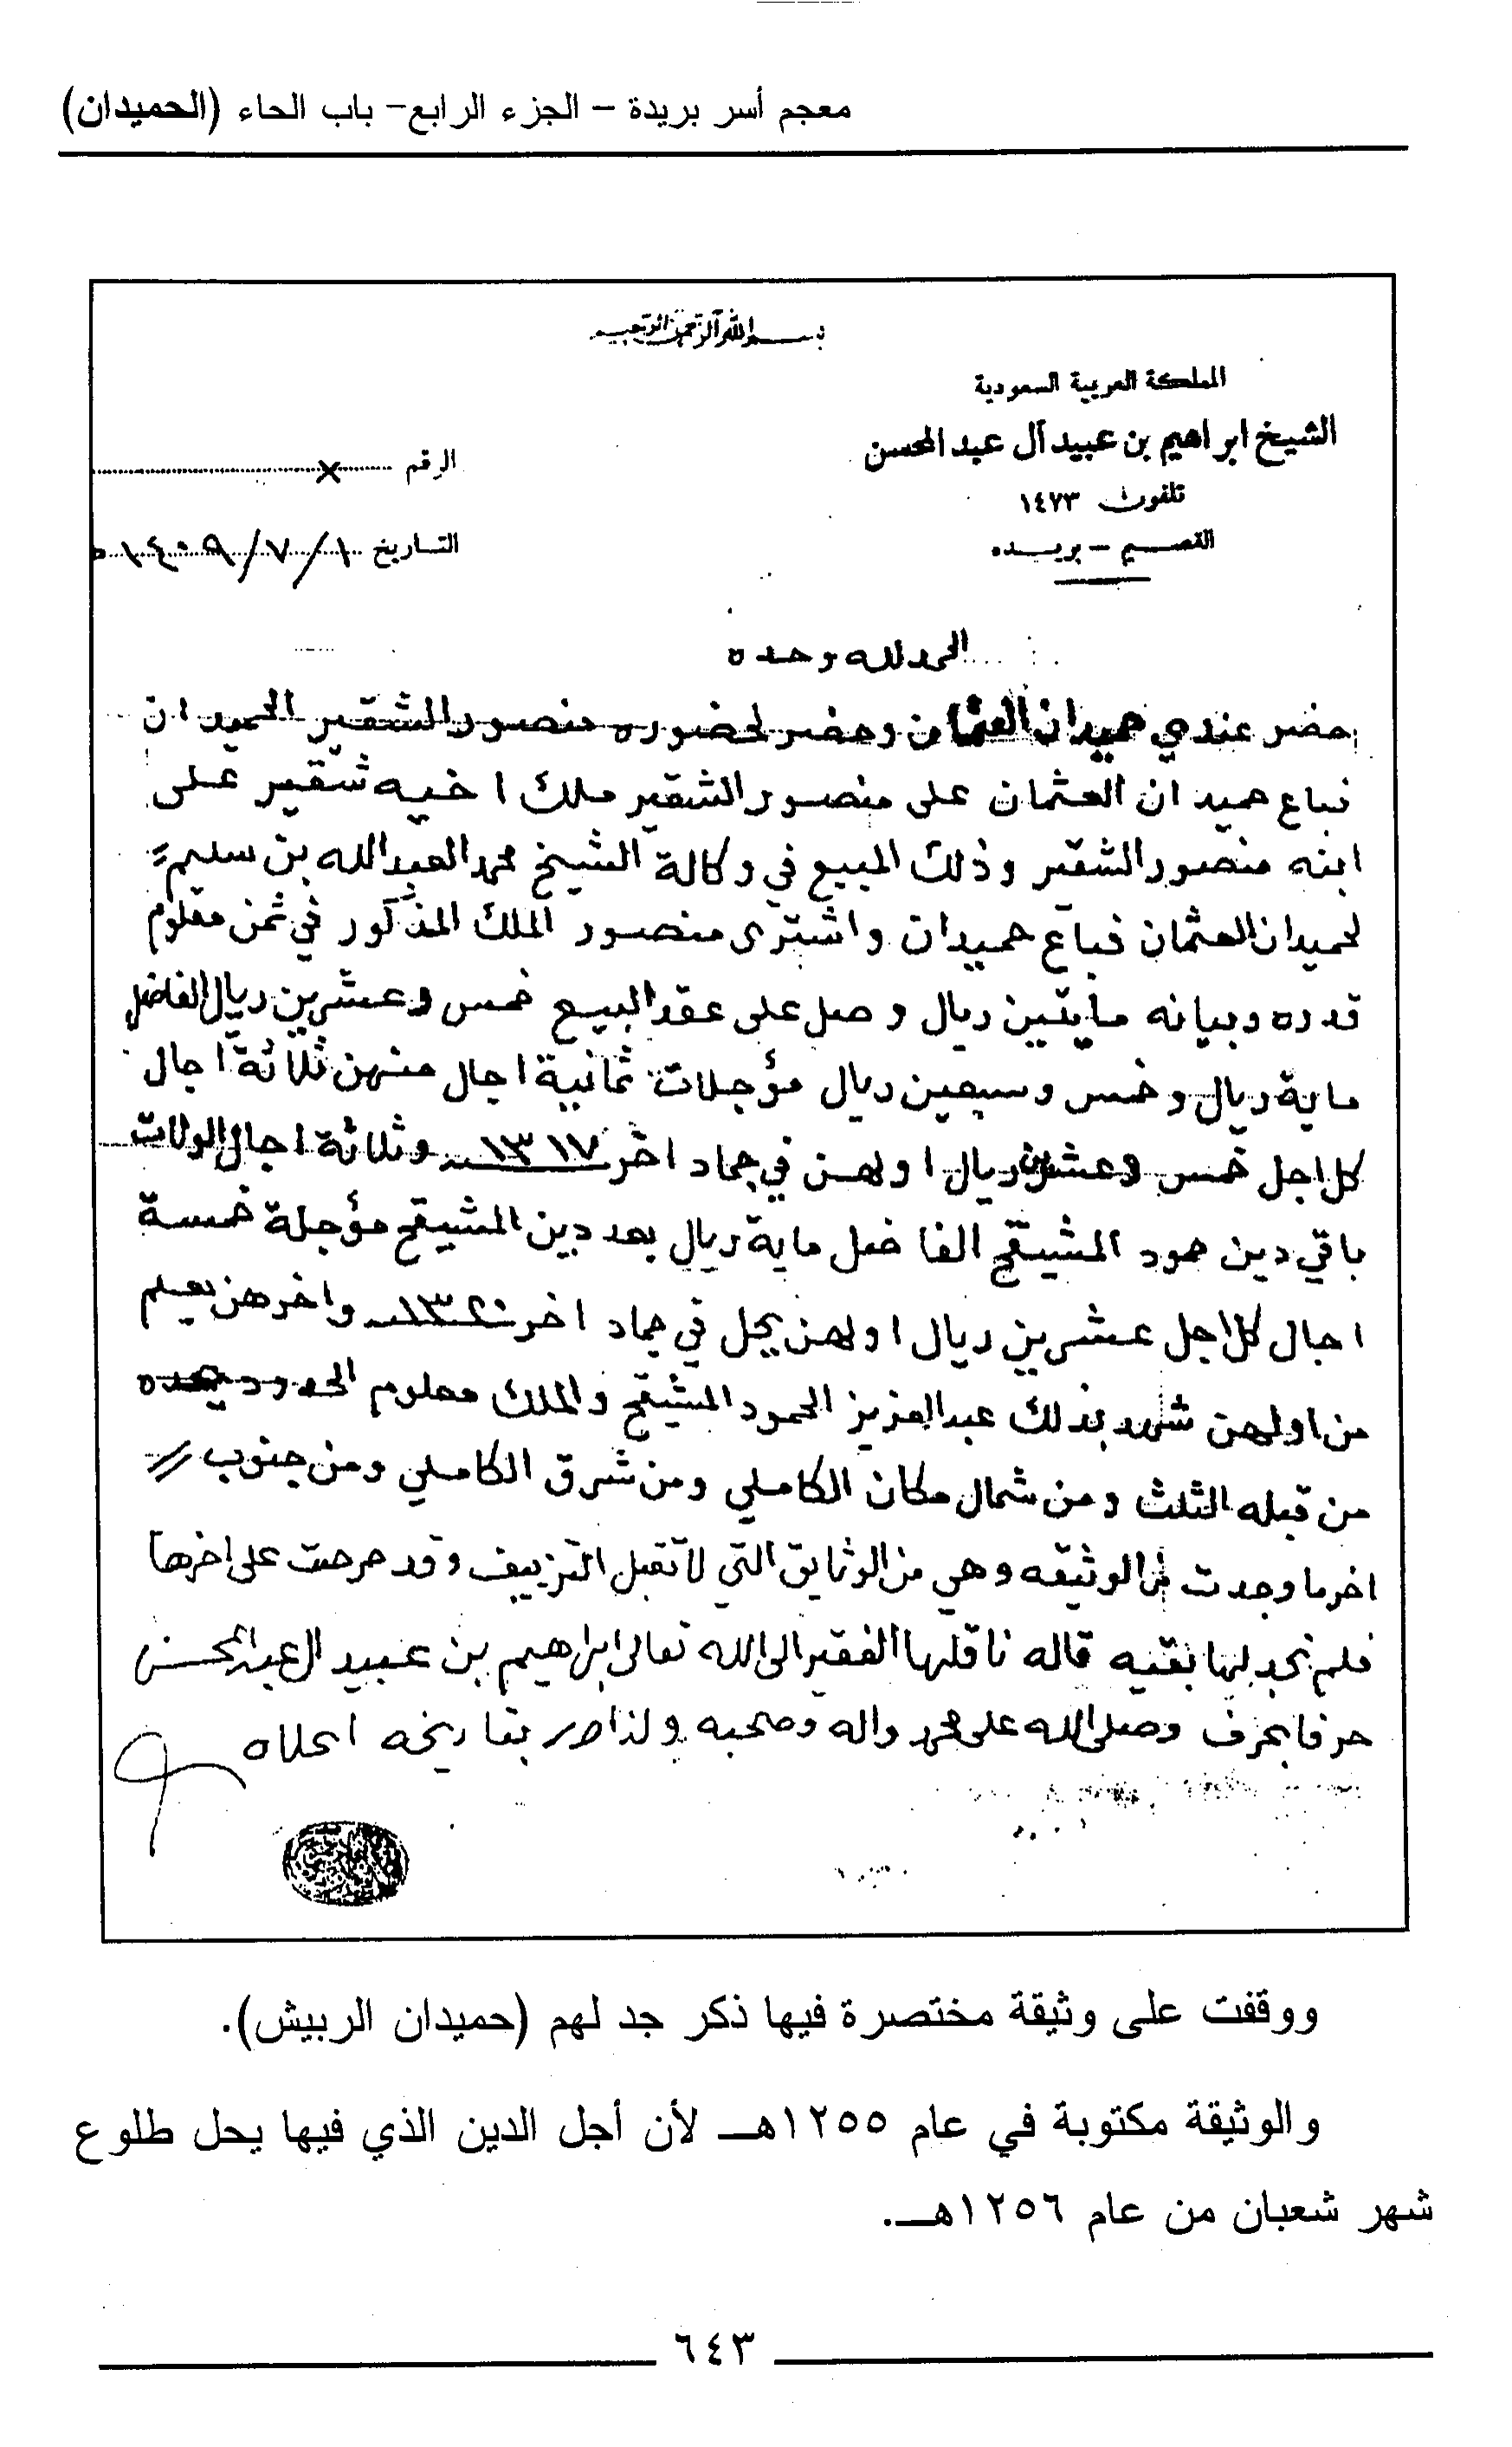 معجم أسر بريدة – الجزء الرابع– باب الحاء (الحميدان)
بسم الله الرحمن الرحيم
المملكة العربية السعودية
الشيخ ابراهيم بن عبيد آل عبد المحسن
تلفون ١٤٧٣
القصيم – بريده
الرقم ×
التاريخ ١/٧/١٤٠٩ ه
الحمد لله وحده
حضر عندي حميدان العثمان وحضر لحضوره منصور الشقير الحميدان
فباع حميدان العثمان على منصور الشقير ملك اخيه شقير على
ابنه منصور الشقير وذلك المبيع في وكالة الشيخ محمد العبد الله بن سليم
لحميدان العثمان فباع حميدان واشترى منصور الملك المذكور في ثمن معلوم
قدره وبيانه مايتين ريال وصل على عقد البيع خمس وعشرين ريال الفاضل
ماية ريال وخمس وسبعين ريال مؤجلات ثمانية اجال منهن ثلاثة اجال
كل اجل خمس وعشرين ريال اولهن في جماد اخر ١٣١٧ وثلاثة اجال الولات
باقي دين حمود المشيقح الفاضل ماية ريال بعد دين المشيقح مؤجلة خمسة
اجال كل اجل عشرين ريال اولهن يحل في جماد اخر ١٣٢٠ واخرهن يعلم
من اولهن شهد بذلك عبد العزيز الحمود المشيقح والملك معلوم الحدود يحده
من قبله الثلث ومن شمال مكان الكاملي ومن شرق الكاملي ومن جنوب //
اخر ما وجدت من الوثيقه وهي من الوثايق التي لا تقبل التزييف وقد حرصت على اخرها
فلم نجد لها بقيه قاله ناقلها الفقير الى الله تعالى ابراهيم بن عبيد ال عبد المحسن
حرفا بحرف وصلى الله على محمد واله وصحبه بتاريخه اعلاه
ووقفت على وثيقة مختصرة فيها ذكر جد لهم (حميدان الربيش).
والوثيقة مكتوبة في عام ١٢٥٥هـ لأن أجل الدين الذي فيها يحل طلوع
شهر شعبان من عام ١٢٥٦هـ.
٦٤٣